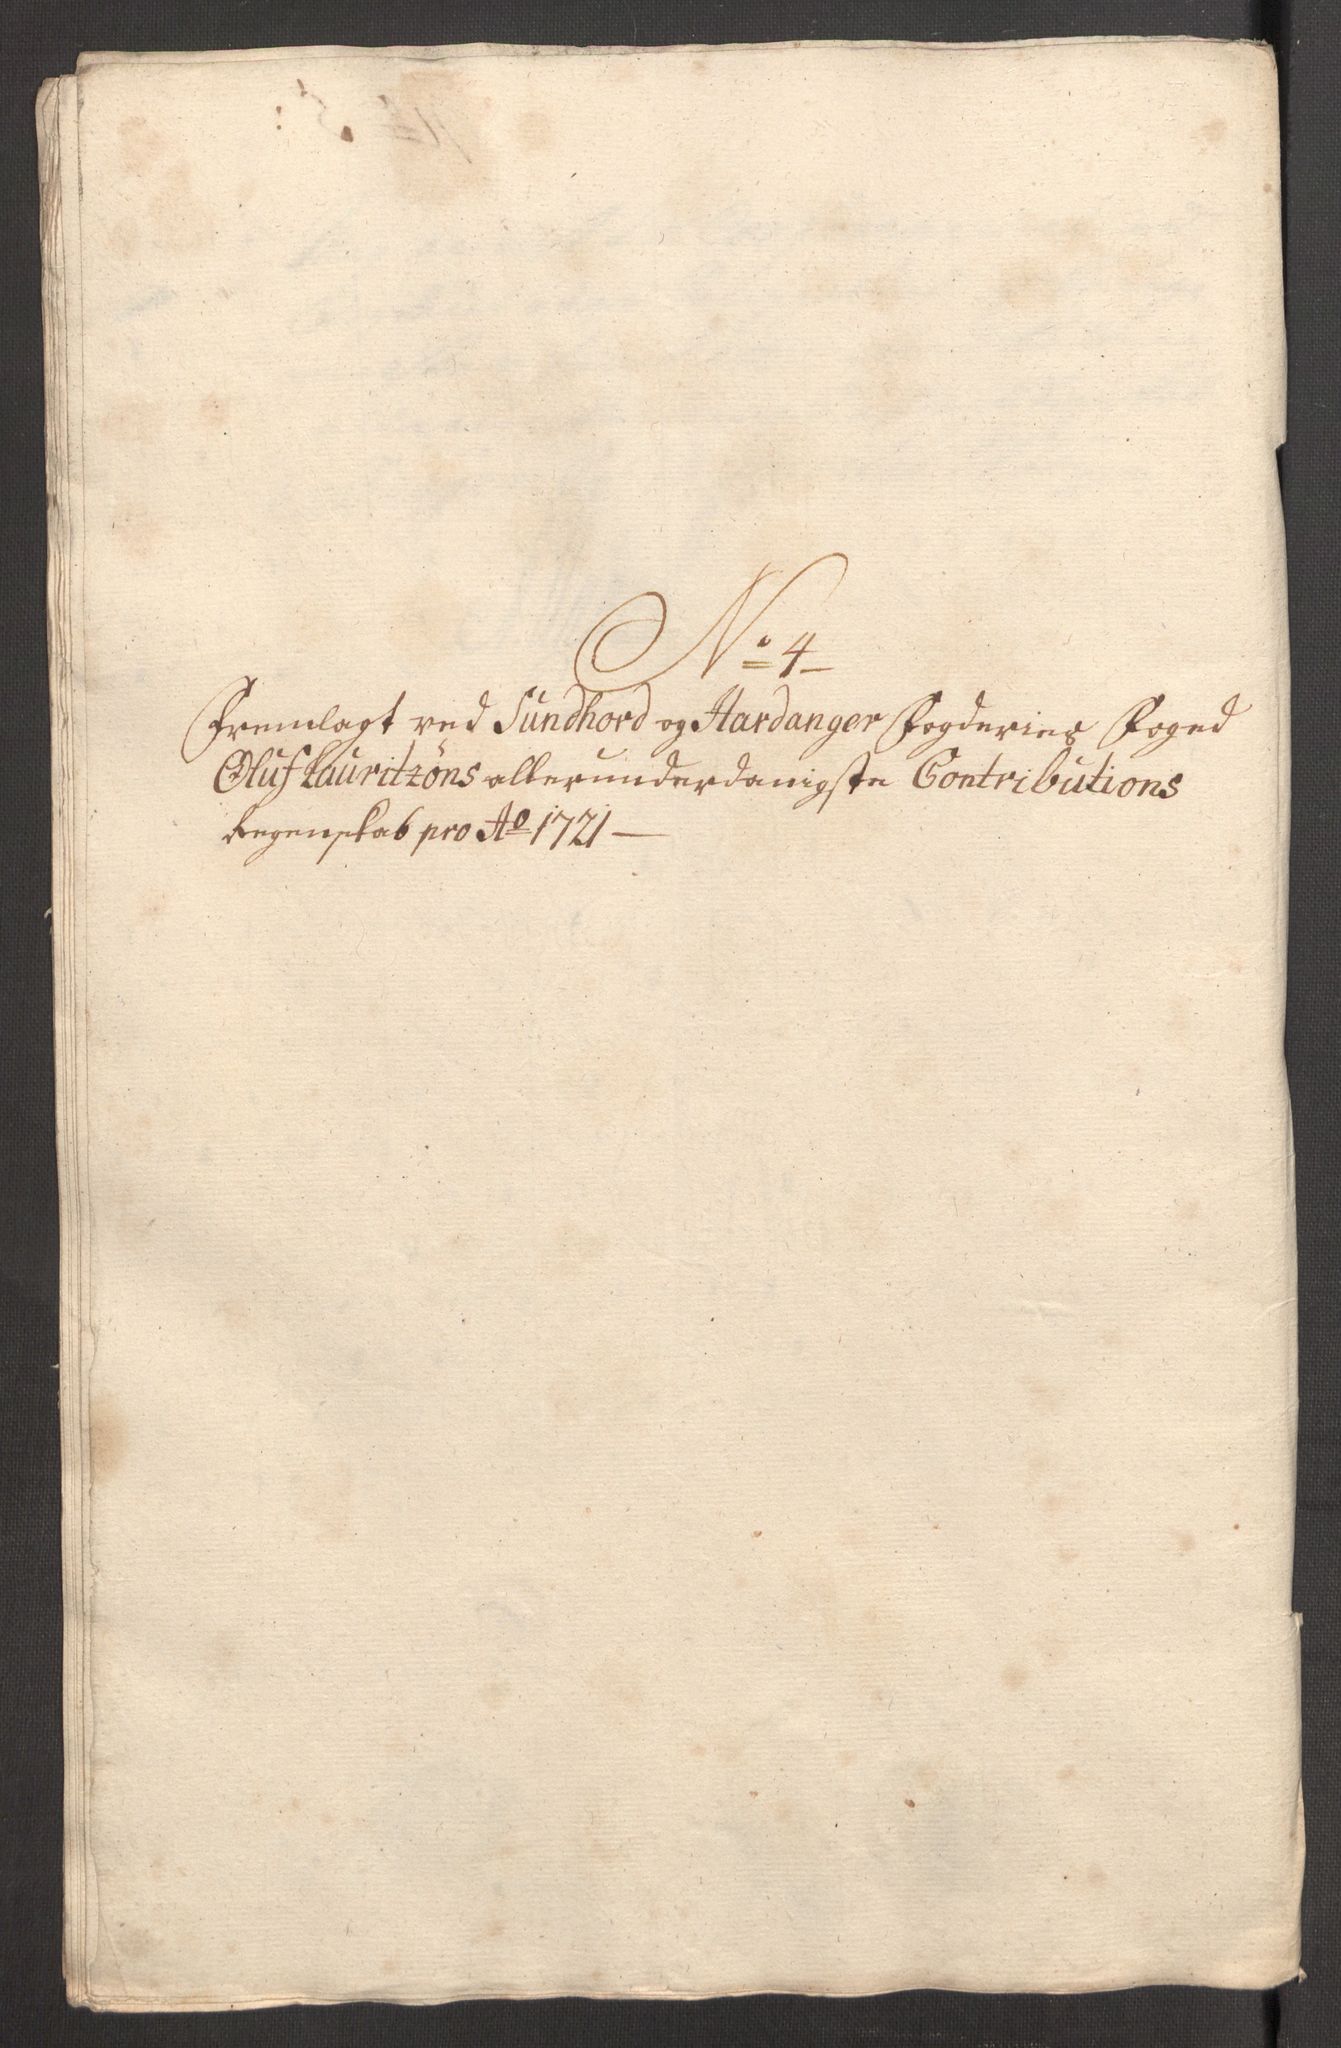 No 4
Fremlagt ved Sundhord og Hardanger Fogderies Foged
Oluf Lauritzøns allerunderdanigste Contributions
Regenskab pro Ao 1721